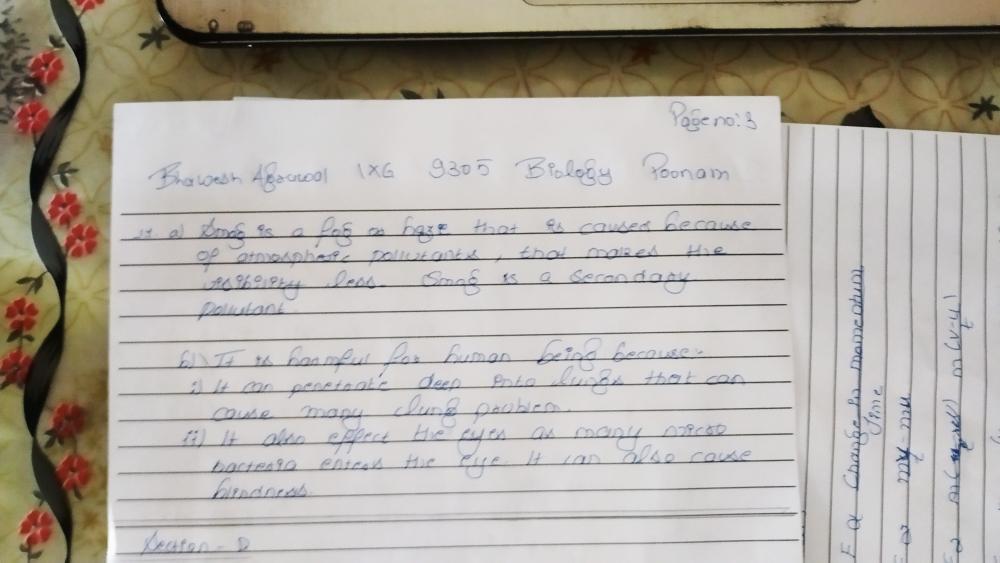 Page no: 3
Bhawesh Agarwal IXG 9305 Biology Poonam
a) Smog is a fog or haze that is caused because
of atmospheric pollutants, that makes the
visibility less. Smog is a secondary
pollutant.
b) It is harmful for human being because:-
i) It can penetrate deep into lungs that can
cause many lung problem.
ii) It also effect the eyes as many micro
bacteria enters the eye. It can also cause
blindness.
Section - D
F α Change in momentum
time
mv - mu
m(v-u)
t